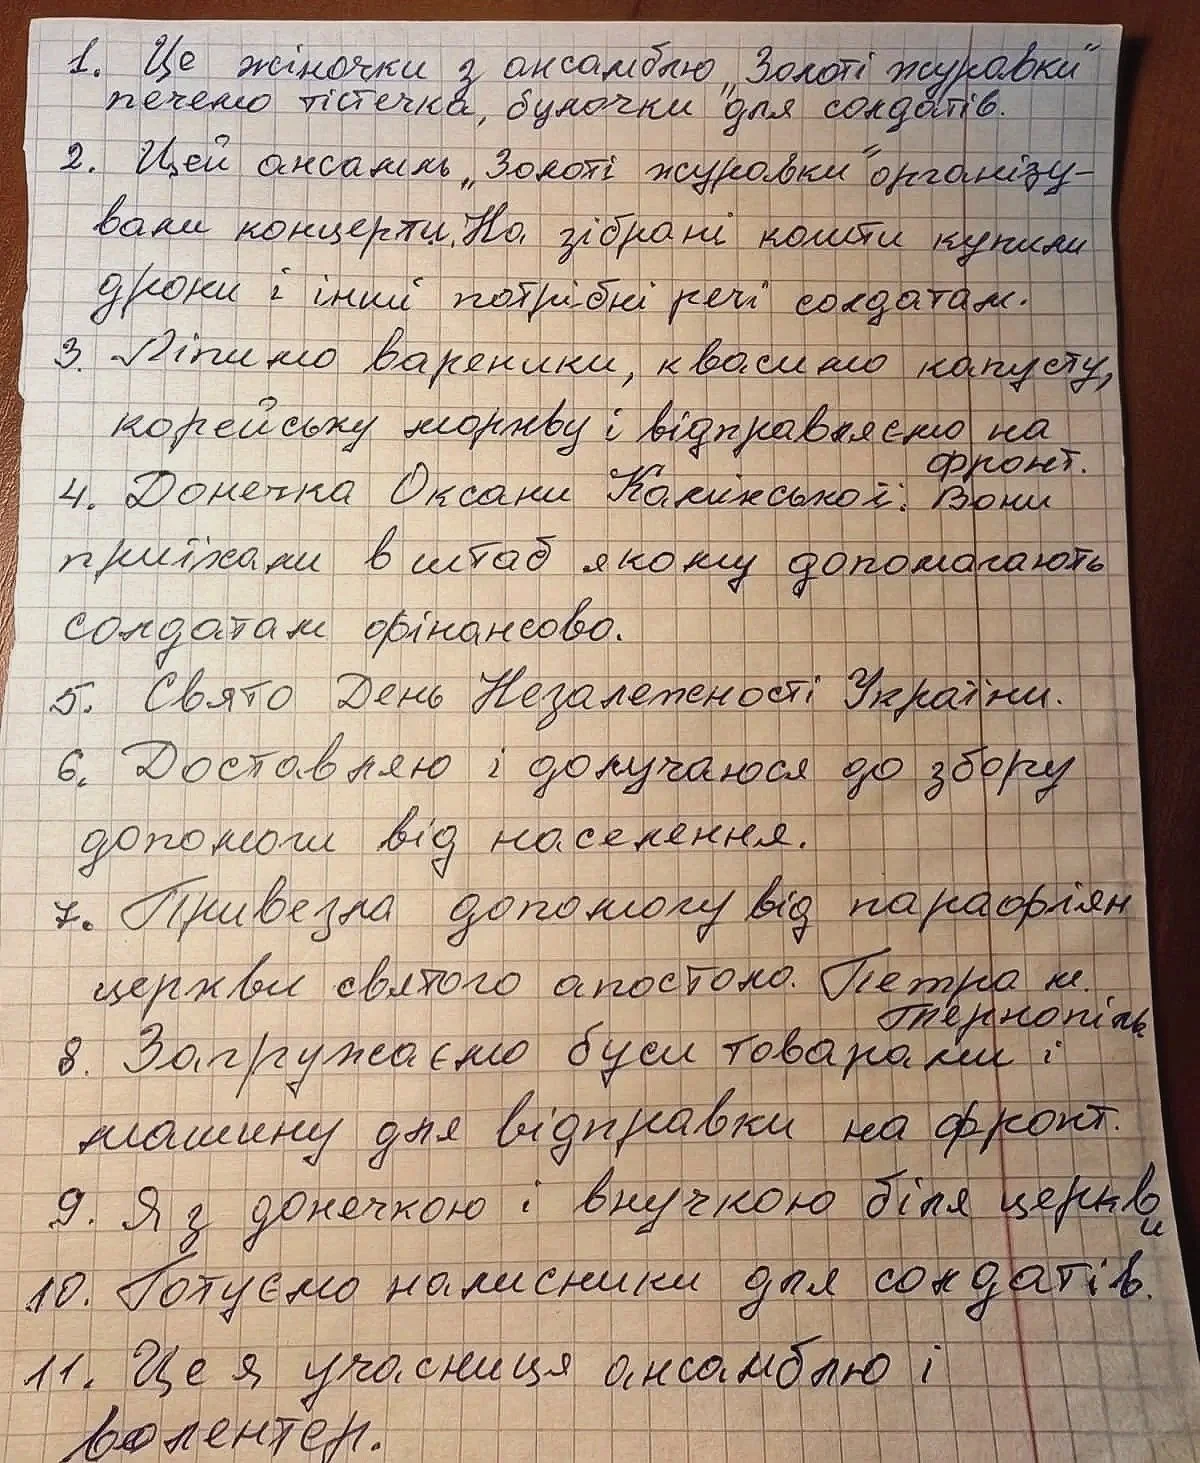 1. Це жіночки з ансамблю „Золоті журавки"
печемо тістечка, булочки для солдатів.
2. Цей ансамль „Золоті журавки" організу-
вали концерти. На зібрані кошти купили
дрони і інший потрібні речі солдатам.
3. Ліпимо вареники, квасимо капусту,
корейську моркву і відправляємо на
фронт.
4. Донечка Оксани Камінської. Вони
приїхали в штаб якому допомагають
солдатам фінансово.
5. Свято День Незалежності України.
6. Доставляю і долучаюся до збору
допомоги від населення.
7. Привезла допомогу від парафіян
церкви святого апостола. Петра м.
Тернопіль
8. Загружаємо буси товарами і
машину для відправки на фронт.
9. Я з донечкою і внучкою біля церкви
10. Готуємо налисники для солдатів.
11. Це я учасниця ансамблю і
волентер.